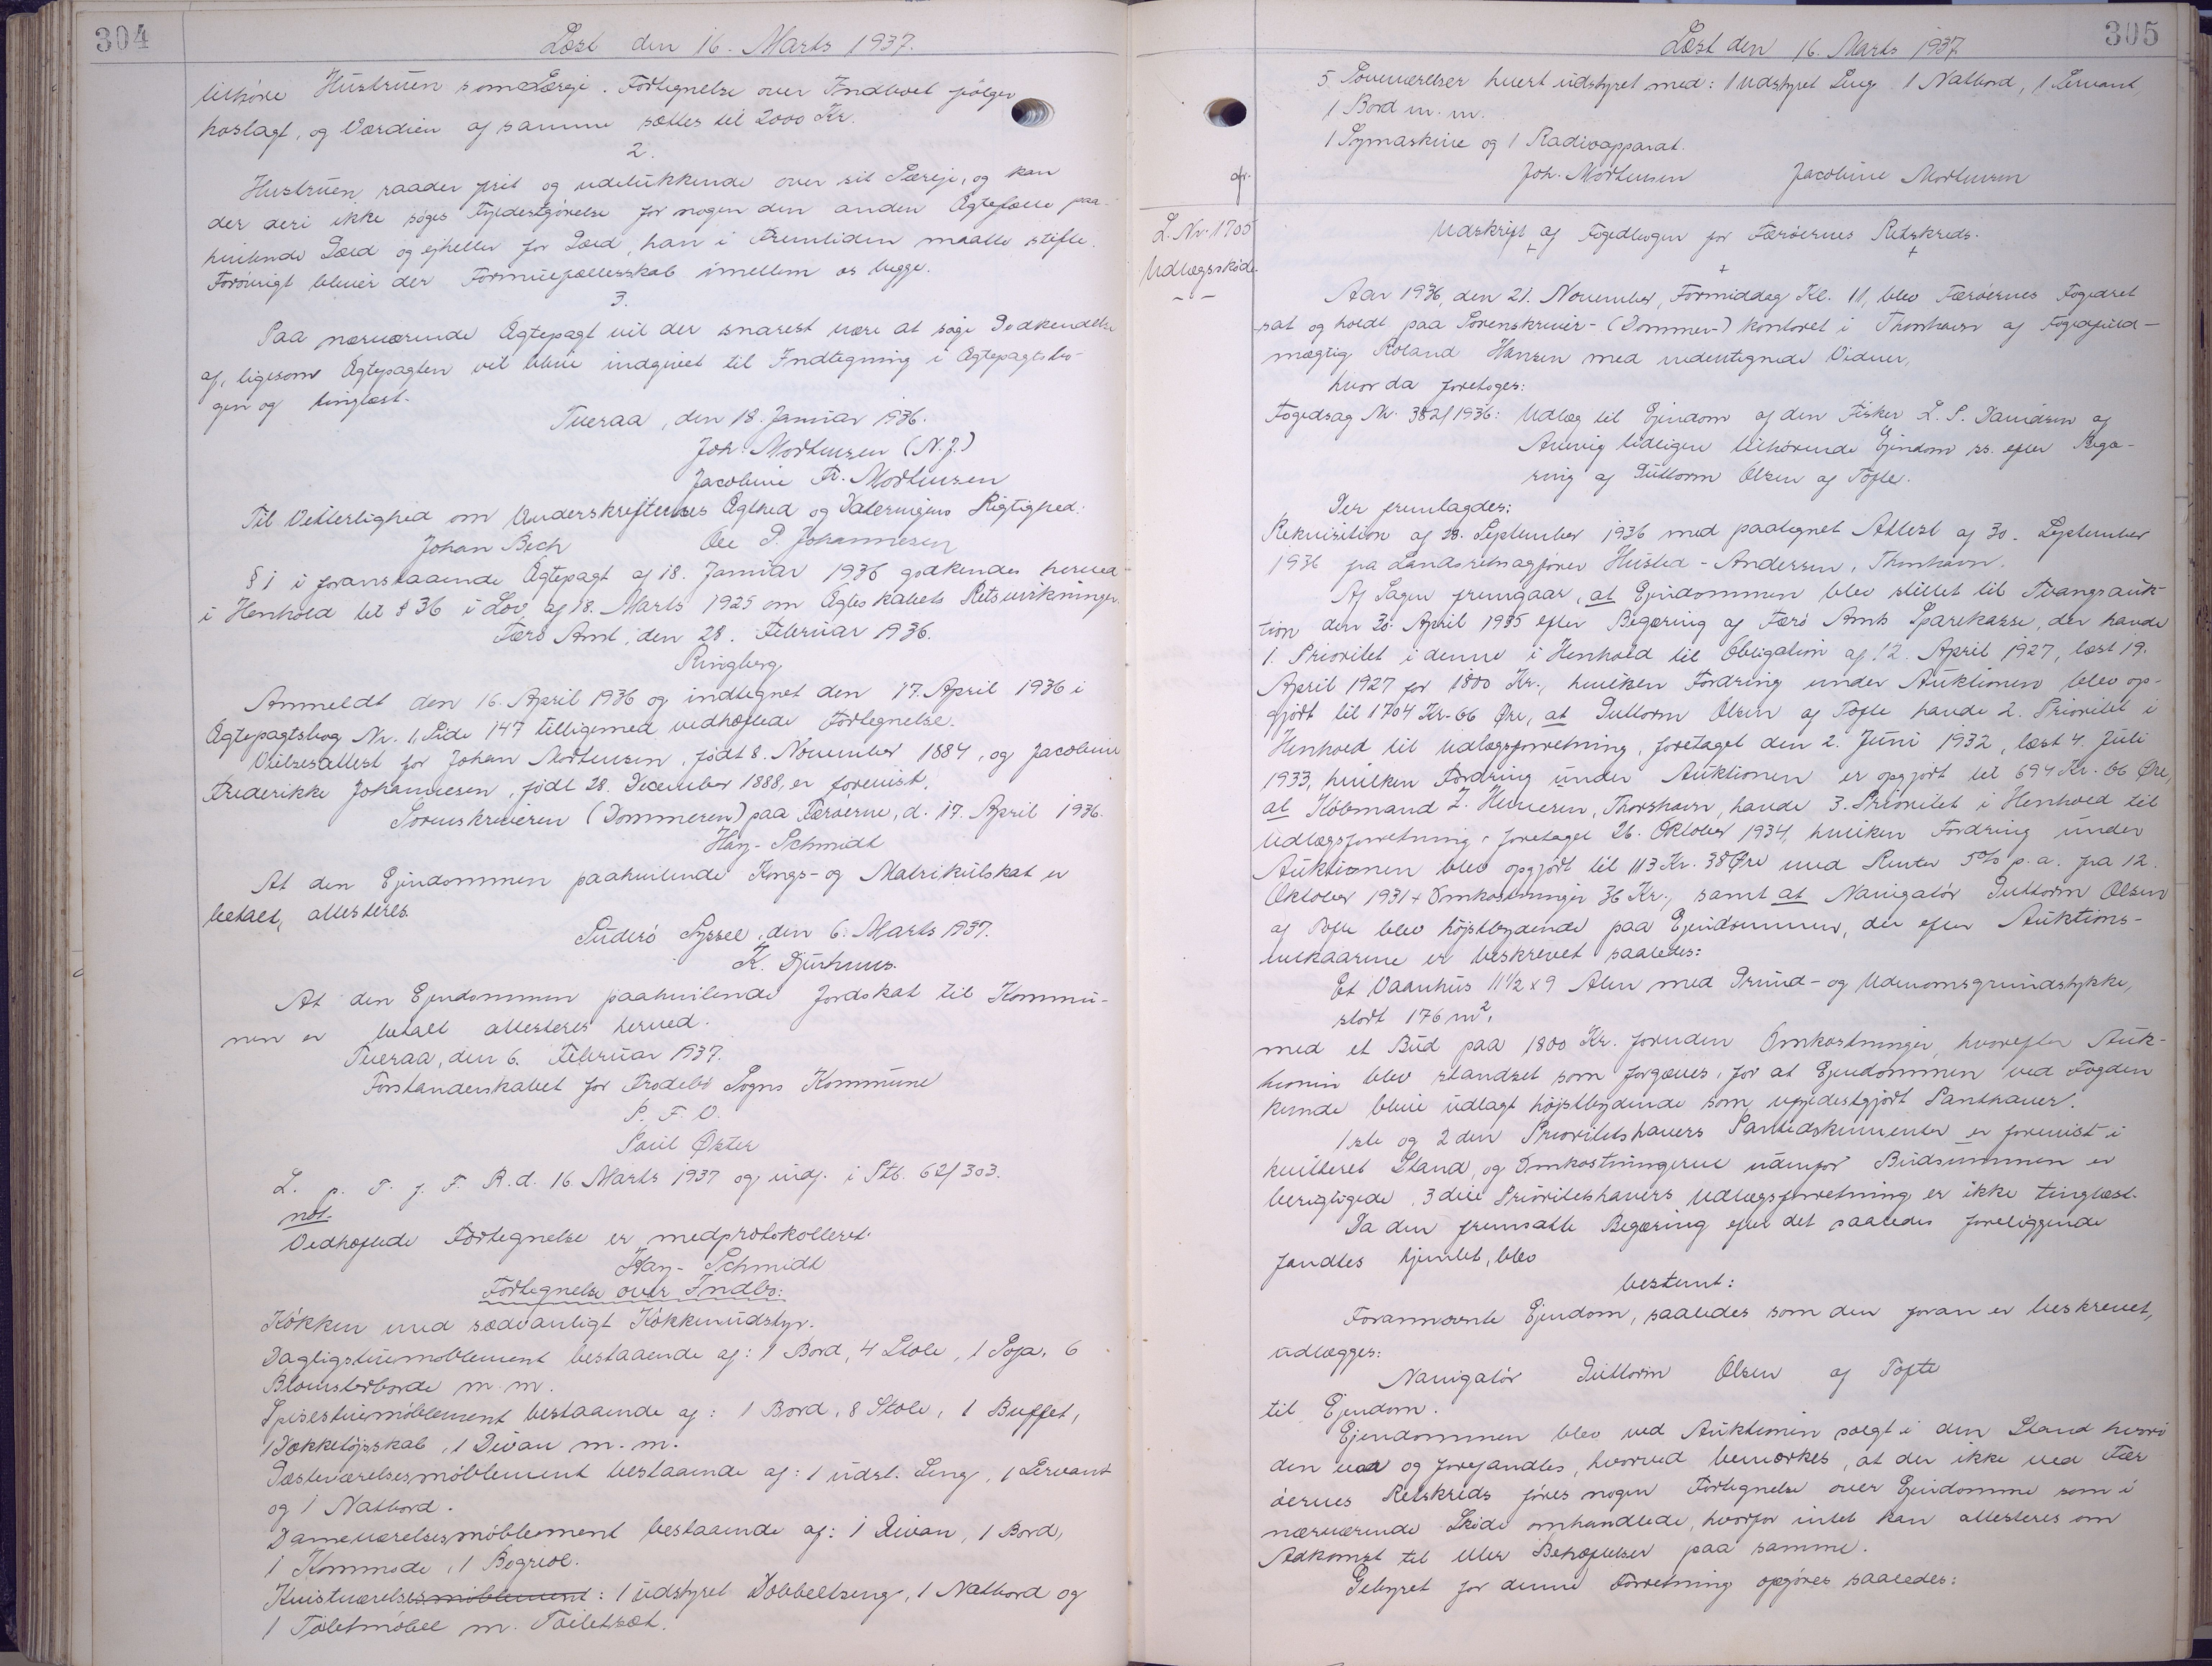 304
Læst den 16. Marts 1937.
tilhøre Hustruen som Særeje. Fortegnelse over Indboet følger
hoslagt, og Værdien af samme sættes til 2000 Kr.
2.
Hustruen raader frit og udelukkende over sit Særeje, og kan
der deri ikke søges Fyldestgørelse for nogen den anden Ægtefælle paa-
hvilende Gæld og ejheller for Gæld, han i Fremtiden maatte stifte.
Forøvrigt bliver der Formuefællesskab imellem os begge.
3.
Paa nærværende Ægtepagt vil der snarest være at søge Godkendelse
af, ligesom Ægtepagten vil blive indgivet til Indtegning i Ægtepagtsbo-
gen og tinglæst.
Tveraa, den 18. Januar 1936.
Joh. Mortensen (N.J.)
Jacobine Fr. Mortensen
Til Vitterlighed om Underskrifternes Ægthed og Dateringens Rigtighed:
Johan Bech Ole P. Johannesen
§ 1 i foranstaaende Ægtepagt af 18. Januar 1936 godkendes herved
i Henhold til § 36 i Lov af 18. Marts 1925 om Ægteskabets Retsvirkninger.
Færø Amt, den 28. Februar 1936.
Ringberg
Anmeldt den 16. April 1936 og indtegnet den 17. April 1936 i
Ægtepagtsbog Nr. 1, Side 147 tilligemed vedhæftede Fortegnelse.
Vielsesattest for Johan Mortensen, født 8. November 1884, og Jacobine
Frederikke Johannesen, født 28. December 1888, er forevist.
Sorenskriveren (Dommeren) paa Færøerne, d. 17. April 1936.
Hay-Schmidt
At den Ejendommen paahvilende Kongs- og Matrikulskat er
betalt, attesteres.
Suderø Syssel, den 6. Marts 1937.
K. Djurhuus.
At den Ejendommen paahvilende Jordskat til Kommu-
nen er betalt attesteres herved.
Tveraa, den 6. Februar 1937.
Forstanderskabet for Frodebø Sogns Kommune
P. F. V.
Poul Øster
L. p. T. f. F. R. d. 16 Marts 1937 og indf. i Stb. 62/303.
not.
Vedhæftede Fortegnelse er medprotokolleret.
Hay-Schmidt
Fortegnelse over Indbo:
Køkken med sædvanligt Køkkenudstyr.
Dagligstuemøblement bestaaende af: 1 Bord, 4 Stole, 1 Sofa, 6
Blomsterborde m.m.
Spisestuemøblement bestaaende af: 1 Bord, 8 Stole, 1 Buffet,
1 Dækketøjsskab, 1 Divan m.m.
Gæsteværelsesmøblement bestaaende af: 1 udst. Seng, 1 Servant
og 1 Natbord.
Dameværelsesmøblement bestaaende af: 1 Divan, 1 Bord,
1 Kommode, 1 Bogreol.
Kvistværelsesmøblement: 1 udstyret Dobbeltseng, 1 Natbord og
1 Toiletmøbel m. Toiletsæt.
305
Læst den 16. Marts 1937
5 Soveværelser hvert udstyret med: 1 udstyret Seng 1 Natbord, 1 Servant,
1 Bord m.m.
1 Symaskine og 1 Radioapparat.
Joh. Mortensen Jacobine Mortensen
L. Nr. 1705
Udlægsskøde
Udskrift af Fogedbogen for Færøernes Retskreds.
Aar 1936, den 21. November, Formiddag Kl. 11, blev Færøernes Fogedret
sat og holdt paa Sorenskriver- (Dommer-) kontoret i Thorshavn af Fogedfuld-
mægtig Roland Hansen med undertegnede Vidner,
hvor da foretoges:
Fogedsag Nr. 382/1936: Udlæg til Ejendom af den Fisker L. P. Davidsen af
Arnvig tidligere tilhørende Ejendom ss. efter Begæ-
ring af Guttorm Olsen af Tofte.
Der fremlagdes:
Rekvisition af 28. September 1936 med paategnet Attest af 30. September
1936 fra Landsretssagfører Husted-Andersen, Thorshavn.
Af Sagen fremgaar, at Ejendommen blev stillet til Tvangsauk-
tion den 30. April 1935 efter Begæring af Færø Amts Sparekasse, der havde
1. Prioritet i denne i Henhold til Obligation af 12. April 1927, læst 19.
April 1927 for 1800 Kr., hvilken Fordring under Auktionen blev op-
gjort til 1704 Kr. 66 Øre, at Guttorm Olsen af Tofte havde 2. Prioritet i
Henhold til Udlægsforretning, foretaget den 2. Juni 1932, læst 4. Juli
1933, hvilken Fordring under Auktionen er opgjort til 694 Kr. 06 Øre,
at Købmand Z. Heinesen, Thorshavn, havde 3. Prioritet i Henhold til
Udlægsforretning, foretaget 26. Oktober 1934, hvilken Fordring under
Auktionen blev opgjort til 113 Kr. 38 Øre med Renter 5% p.a. fra 12.
Oktober 1931 + Omkostninger 36 Kr., samt at Navigatør Guttorm Olsen
af Tofte blev højstbydende paa Ejendommen, der efter Auktions-
vilkaarene er beskrevet saaledes:
Et Vaanhus 11½ x 9 Alen med Grund- og Udenomsgrundstykke,
stort 176 m²,
med et Bud paa 1800 Kr. foruden Omkostninger, hvorefter Auk-
tionen blev standset som forgæves, for at Ejendommen ved Fogden
kunde blive udlagt højstbydende som ufyldestgjort Panthaver.
1ste og 2den Prioritetshavers Pantedokumenter er forevist i
kvitteret Stand, og Omkostningerne udenfor Budsummen er
berigtigede, 3die Prioritetshavers Udlægsforretning er ikke tinglæst.
Da den fremsatte Begæring efter det saaledes foreliggende
fandtes hjemlet, blev
bestemt:
Forannævnte Ejendom, saaledes som den foran er beskrevet,
udlægges:
Navigatør Guttorm Olsen af Tofte
til Ejendom.
Ejendommen blev ved Auktionen solgt i den Stand hvori
den var og forefandtes, hvorved bemærkes, at der ikke ved Fær
øernes Retskreds føres nogen Fortegnelse over Ejendomme som i
nærværende Skøde omhandlede, hvorfor intet kan attesteres om
Adkomst til eller Behæftelser paa samme.
Gebyret for denne Forretning opgøres saaledes: